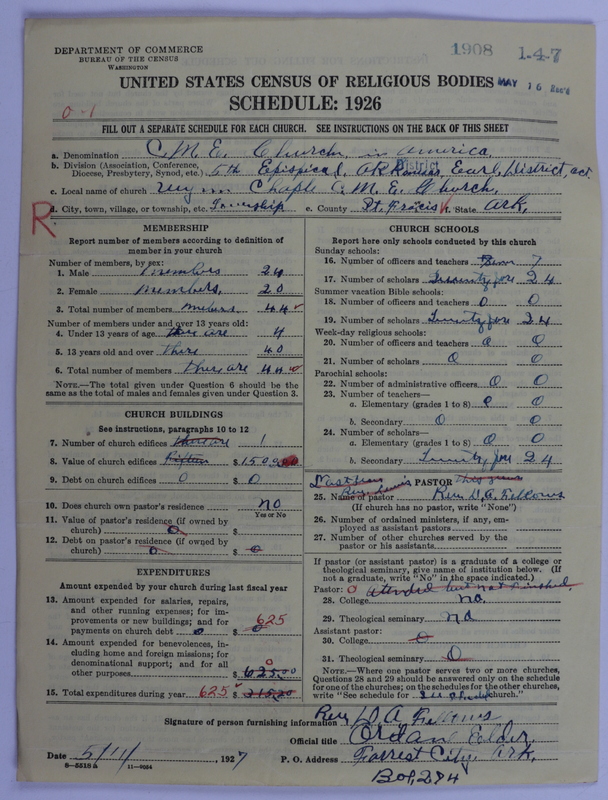 DEPARTMENT OF COMMERCE
BUREAU OF THE CENSUS
WASHINGTON
1908 1-4-7
MAY 16 Rec'd
UNITED STATES CENSUS OF RELIGIOUS BODIES
SCHEDULE: 1926
FILL OUT A SEPARATE SCHEDULE FOR EACH CHURCH. SEE INSTRUCTIONS ON THE BACK OF THIS SHEET
a. Denomination C. M. E. Church in America
b. Division (Association, Conference, Diocese, Presbytery, Synod, etc.) 5th Epispical, ARKansas, Earl, District, act
District
c. Local name of church Chaple C. M. E. Church,
R
d. City, town, village, or township, etc. Township e. County St. Fracis f. State ARK,
MEMBERSHIP
Report number of members according to definition of member in your church
Number of members, by sex:
1. Male members 24
2. Female members, 20
3. Total number of members members 44
Number of members under and over 13 years old:
4. Under 13 years of age there are 4
5. 13 years old and over there 40
6. Total number of members there are 44
NOTE.—The total given under Question 6 should be the same as the total of males and females given under Question 3.
CHURCH BUILDINGS
See instructions, paragraphs 10 to 12
7. Number of church edifices there are 1
8. Value of church edifices Fifteen $1500
9. Debt on church edifices 0 $ 0
10. Does church own pastor's residence no
Yes or No
11. Value of pastor's residence (if owned by church) 0 $
12. Debt on pastor's residence (if owned by church) 0 $ 0
EXPENDITURES
Amount expended by church during last fiscal year
13. Amount expended for salaries, repairs, and other running expenses; for improvements or new buildings; and for payments on church debt 0 $ 625
14. Amount expended for benevolences, including home and foreign missions; for denominational support; and for all other purposes $ 625.00 0
15. Total expenditures during year 625 $
CHURCH SCHOOLS
Report here only schools conducted by this church
Sunday schools:
16. Number of officers and teachers 7
17. Number of scholars 24
Summer vacation Bible schools:
18. Number of officers and teachers 0 0
19. Number of scholars Twenty four 24
Week-day religious schools:
20. Number of officers and teachers 0 0
21. Number of scholars 0 0
Parochial schools:
22. Number of administrative officers 0 0
23. Number of teachers—
a. Elementary (grades 1 to 8) 0 0
b. Secondary 0 0
24. Number of scholars—
a. Elementary (grades 1 to 8) 0 0
b. Secondary Twenty four 24
PASTOR
25. Name of pastor Rev. D. A. Fellows
(If church has no pastor, write "None")
26. Number of ordained ministers, if any, employed as assistant pastors
27. Number of other churches served by the pastor or his assistants
If pastor (or assistant pastor) is a graduate of a college or theological seminary, give name of institution below. (If not a graduate, write "No" in the space indicated.)
Pastor: 0 attended but not finished
28. College no.
29. Theological seminary no
Assistant pastor:
30. College 0
31. Theological seminary 0
NOTE.—Where one pastor serves two or more churches, Questions 28 and 29 should be answered only on the schedule for one of the churches; on the schedules for the other churches, write "See schedule for church."
Signature of person furnishing information Rev D A Fellows
Official title Ordain Ealder.
Date 5/11/, 1927 P. O. Address Forrest City, Ark,
Box, 294
8-5518 a 11-9054